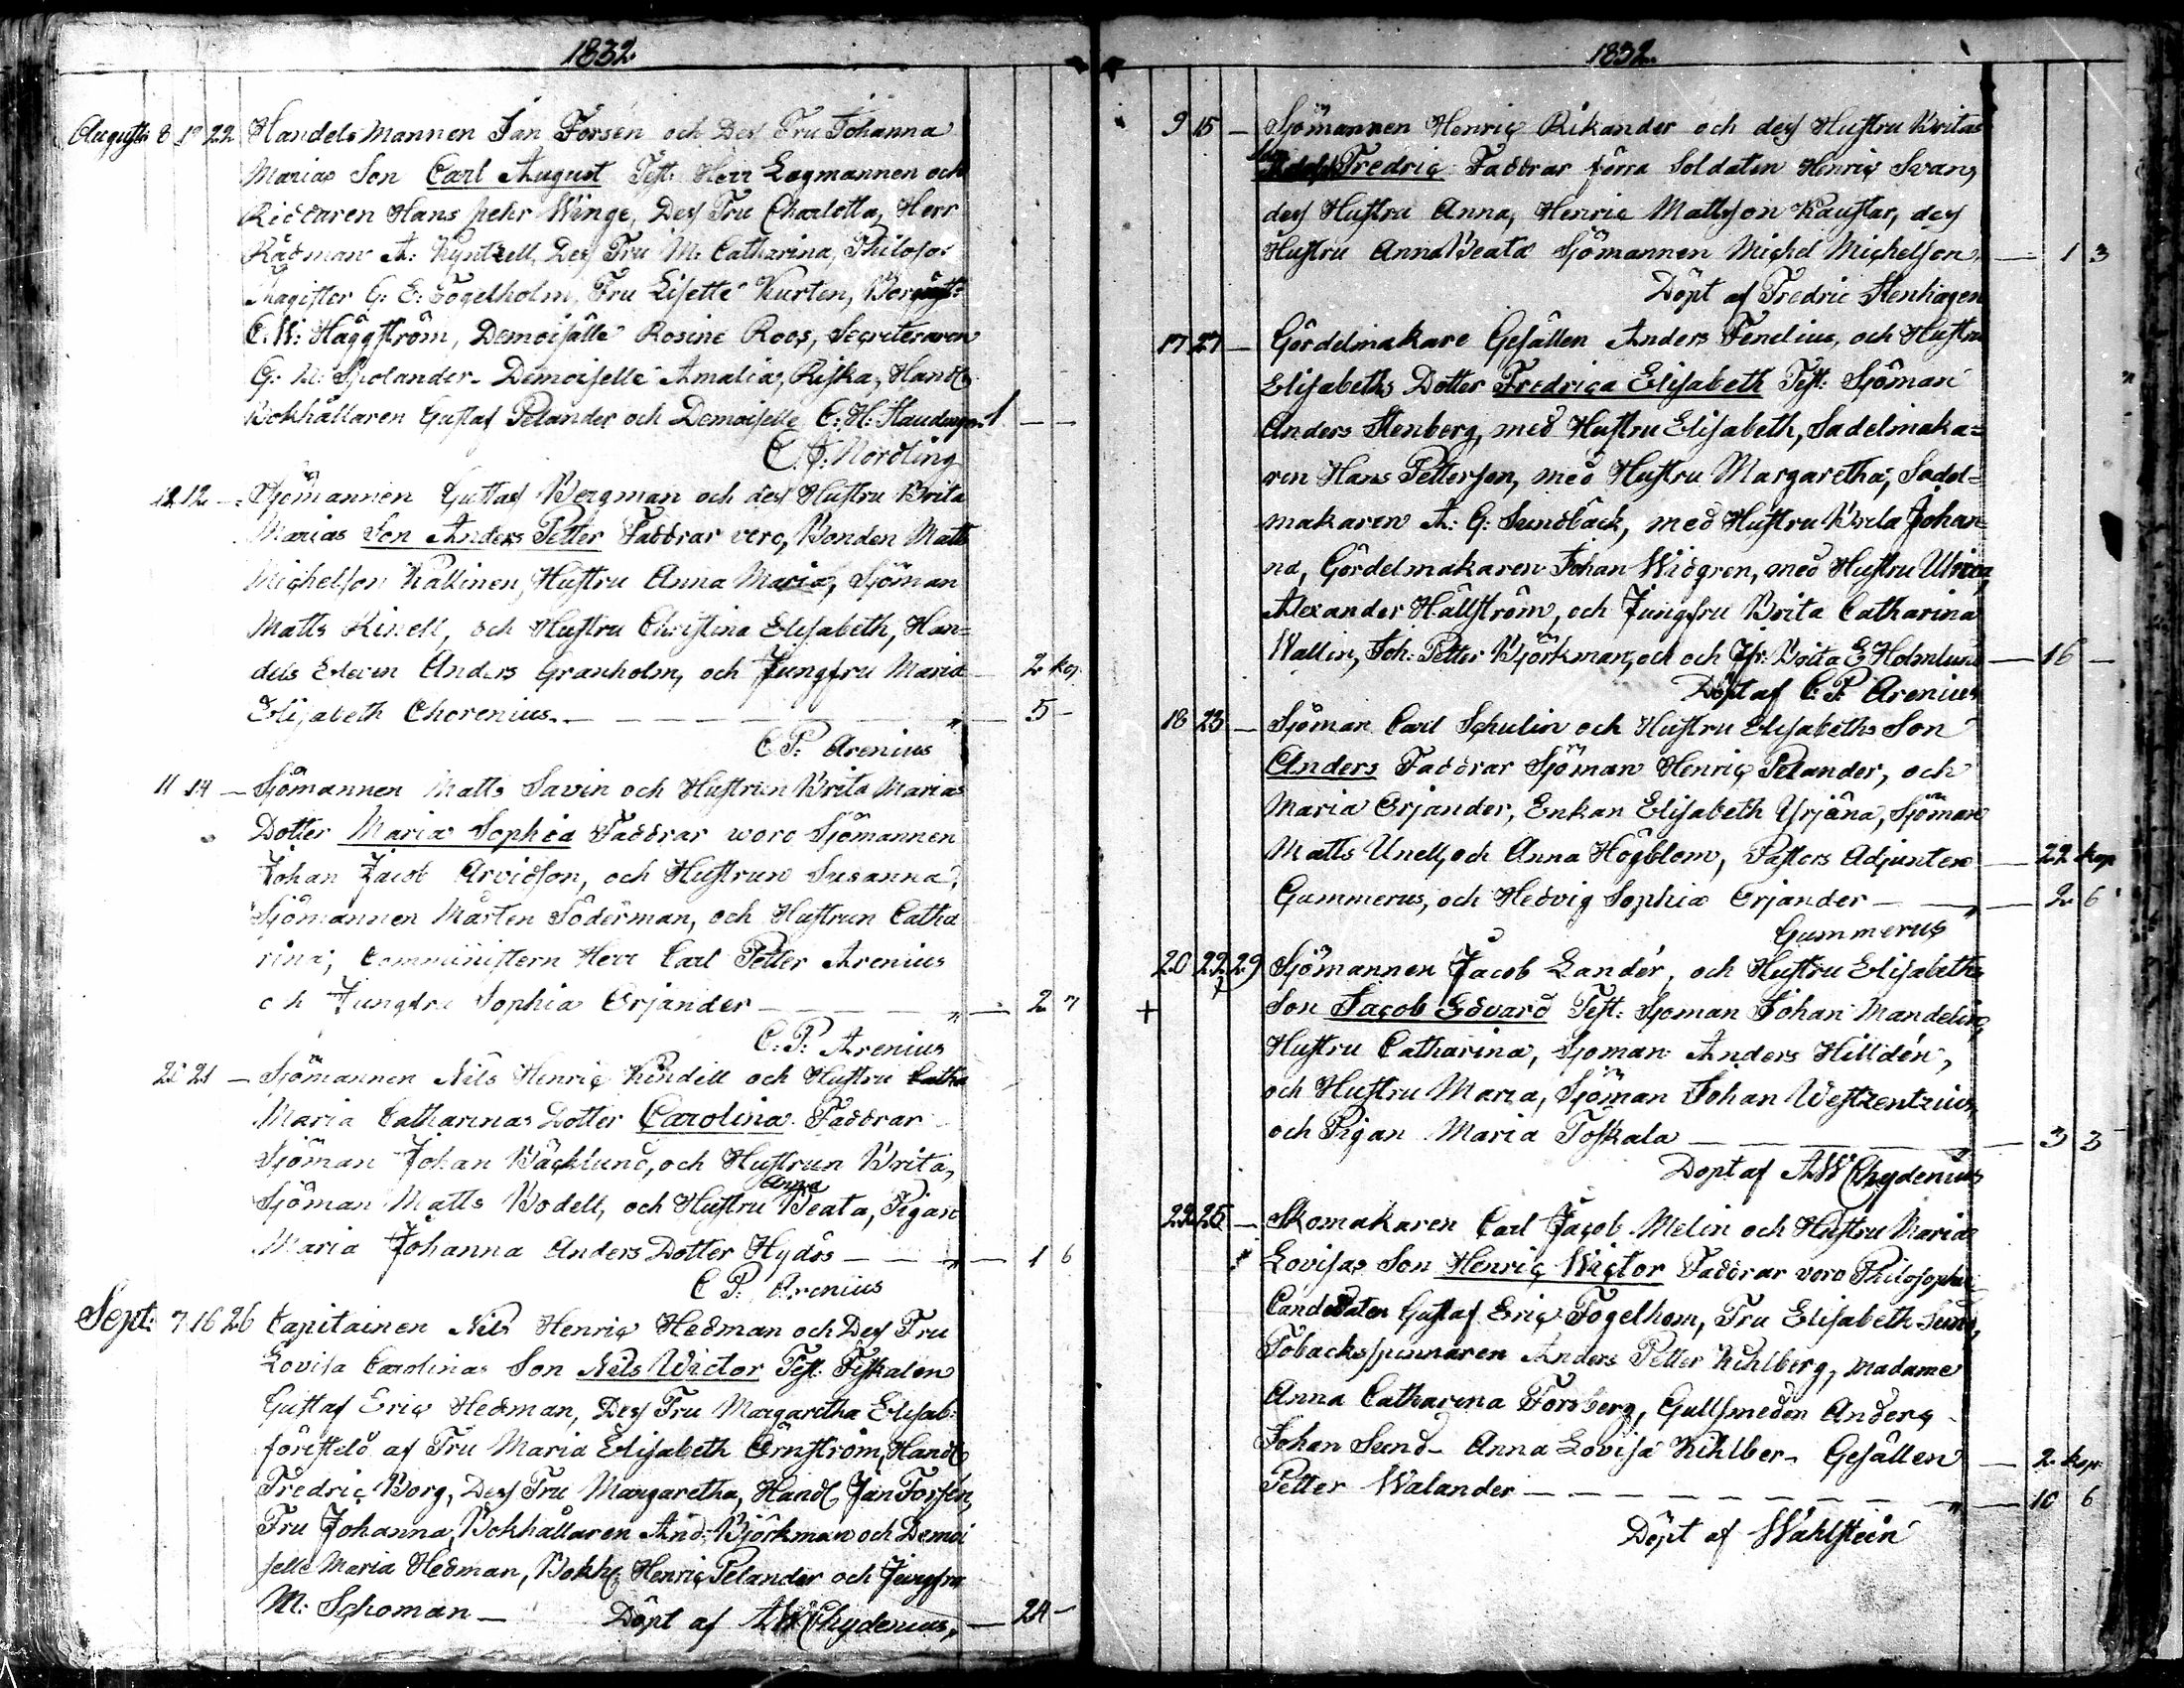 1832.
Augusti 8 18 22 Handels Mannen Jan Forsén och Dess Fru Johanna
Marias Son Carl August Test: Herr Lagmannen och
Riddaren Hans pehr Winge, Dess Fru Charlotta, Herr
Rådman A: Kyntzell, Dess Fru M: Catharina, Philosof
Magister G: E: Fogelholm, Fru Lisette Kurten,
C. W: Häggström, Demoiselle Rosine Roos, Secreteraren
G: Demoiselle Amalia, Riska, Handl
Bokhållaren Gustaf Pelander och Demoiselle C: H: 1 — —
C. J: Nordling
12 — Sjömannen Gustaf Bergman och dess Hustru Brita
Marias Son Anders Petter Faddrar vero, Bonden Matts
Michelson Kallinen, Hustru Anna Maria, Sjöman
Matts Kinell, och Hustru Christina Elisabeth, Han=
dels Eleven Anders Granholm, och Jungfru Maria — 2 kop
Elisabeth Chorenius. — — — 5 —
C. P: Arenius
11 14 — Sjömannen Matts Savin och Hustrun Brita Marias
Dotter Maria Sophia Faddrar woro Sjömannen
Johan Jacob Arvidson, och Hustrun Susanna,
Sjömannen Mårten Söderman, och Hustrun Catha
rina, Comministern Herr Carl Petter Arenius
och Jungfru Sophia Erjander — — — 2 7
C: P: Arenius
20 21 — Sjömannen Nils Henric Kindell och Hustru Catha
Maria Catharinas Dotter Carolina. Faddrar
Sjöman Johan Bäcklund, och Hustrun Brita,
Anna
Sjöman Matts Bodell, och Hustru Beata, Pigan
Maria Johanna Anders Dotter Hydös — — — 1 6
C P: Arenius
Sept: 7 16 26 Capitainen Nils Henric Hedman och Dess Fru
Lovisa Carolinas Son Nils Wictor Test: Fiskalen
Gustaf Eric Hedman, Dess Fru Margaretha Elisab:
föreställd af Fru Maria Elisabeth Örnström, Handl
Fredric Borg, Dess Fru Margaretha, Handl Jan Forsén,
Fru Johanna, Bokhållaren And: Björkman och Demoi
selle Maria Hedman, Bokh: Henric Pelander och Jungfru
M: Schoman — Döpt af AW Chydenius, — 24 —
1832.
9 15 — Sjömannen Henric Rikander och dess Hustru Britas
Fredric Faddrar förra Soldaten Henric Svan,
dess Hustru Anna, Henric Mattsson Kaustar, dess
Hustru Anna Beata Sjömannen Michel Michelson, — 1 3
Döpt af Fredric Stenhagen
17 27 — Gördelmakare Gesällen Anders Fenelius, och Hustru
Elisabeths Dotter Fredrica Elisabeth Test: Sjöman
Anders Stenberg, med Hustru Elisabeth, Sadelmaka=
ren Hans Petterson, med Hustru Margaretha, Sadel=
makaren A: G: Sundbäck, med Hustru Brita Johan=
na, Gördelmakaren Johan Widgren, med Hustru Ulrica,
Alexander Hällström, och Jungfru Brita Catharina
Wallin, Joh: Petter Björkman, och och Jfr: Brita E Holmlund — 16 —
Döpt af C: P. Arenius
18 23 — Sjöman Carl Schulin och Hustru Elisabeths Son
Anders Faddrar Sjöman Henric Pelander, och
Maria Erjander, Enkan Elisabeth Yrjäna, Sjöman
Matts Unell, och Anna Högblom, Pastors Adjunten — 22 kop
Gummerus, och Hedvig Sophia Erjander — — 2 6
Gummerus
20 22 29 Sjömannen Jacob Landér, och Hustru Elisabeths
+ Son Jacob Edvard Test: Sjöman Johan Mandelin,
Hustru Catharina, Sjöman Anders Hilldén,
och Hustru Maria, Sjöman Johan Westzentzius,
och Pigan Maria Toskala — — — 3 3
Döpt af AW Chydenius
22 25 — Skomakaren Carl Jacob Melin och Hustru Maria
Lovisas Son Henric Wictor Faddrar voro Philosophie
Candidaten Gustaf Eric Fogelhom, Fru Elisabeth Sund,
Tobacksspinnaren Anders Petter Kihlberg, Madame
Anna Catharina Forsberg, Gullsmeden Anders
Johan Sund — Anna Lovisa Kihlber — Gesällen — 2 kop
Petter Walander — — — 10 6
Döpt af Wahlstein